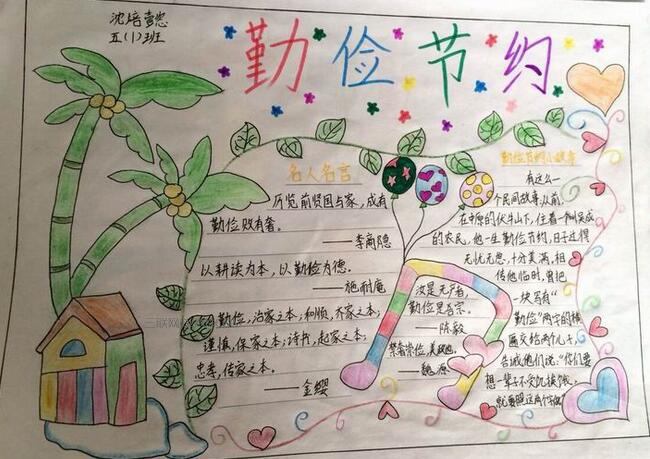 沈培壹
五(1)班
勤俭节约
名人名言
历览前贤国与家,成有
勤俭败有奢。
——李商隐
以耕读为本,以勤俭为德。
——施耐庵
勤俭,治家之本;和顺,齐家之本;
谨慎,保家之本;诗书,起家之本;
忠孝,传家之本。
——金缨
汝是无尸者,
勤俭是吾宗。
——陈毅
——魏源
勤俭节约小故事
有这么一
个民间故事,从前,
在中原的伏牛山下,住着一个叫吴成
的农民,他一生勤俭节约,日子过得
无忧无虑,十分美满。相
传他临时,曾把
一块写有“
勤俭”两字的横
匾交给两个儿子,
告诫他们说:“你们要
想一辈子不受饥挨饿,
就要照这两个字做”